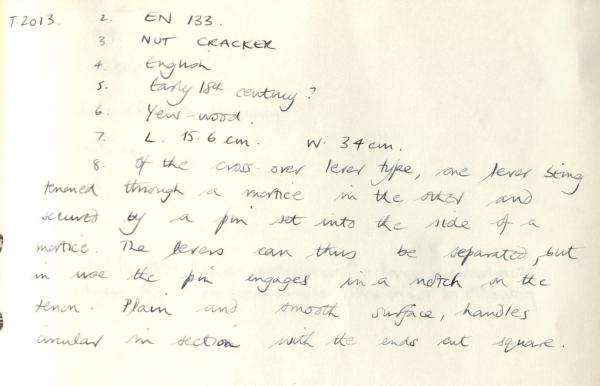 T2013. 2. EN 133.
3 NUT CRACKER
4. English
5. Early 18th century?
6. Yew-wood.
7. L. 15.6 cm. W. 34 cm.
8. Of the cross-over lever type, one lever being
tenoned through a mortice in the other and
secured by a pin set into the side of a
mortice. The levers can thus be separated, but
in use the pin engages in a notch on the
tenon. Plain and smooth surface, handles
circular in section with the ends cut square.